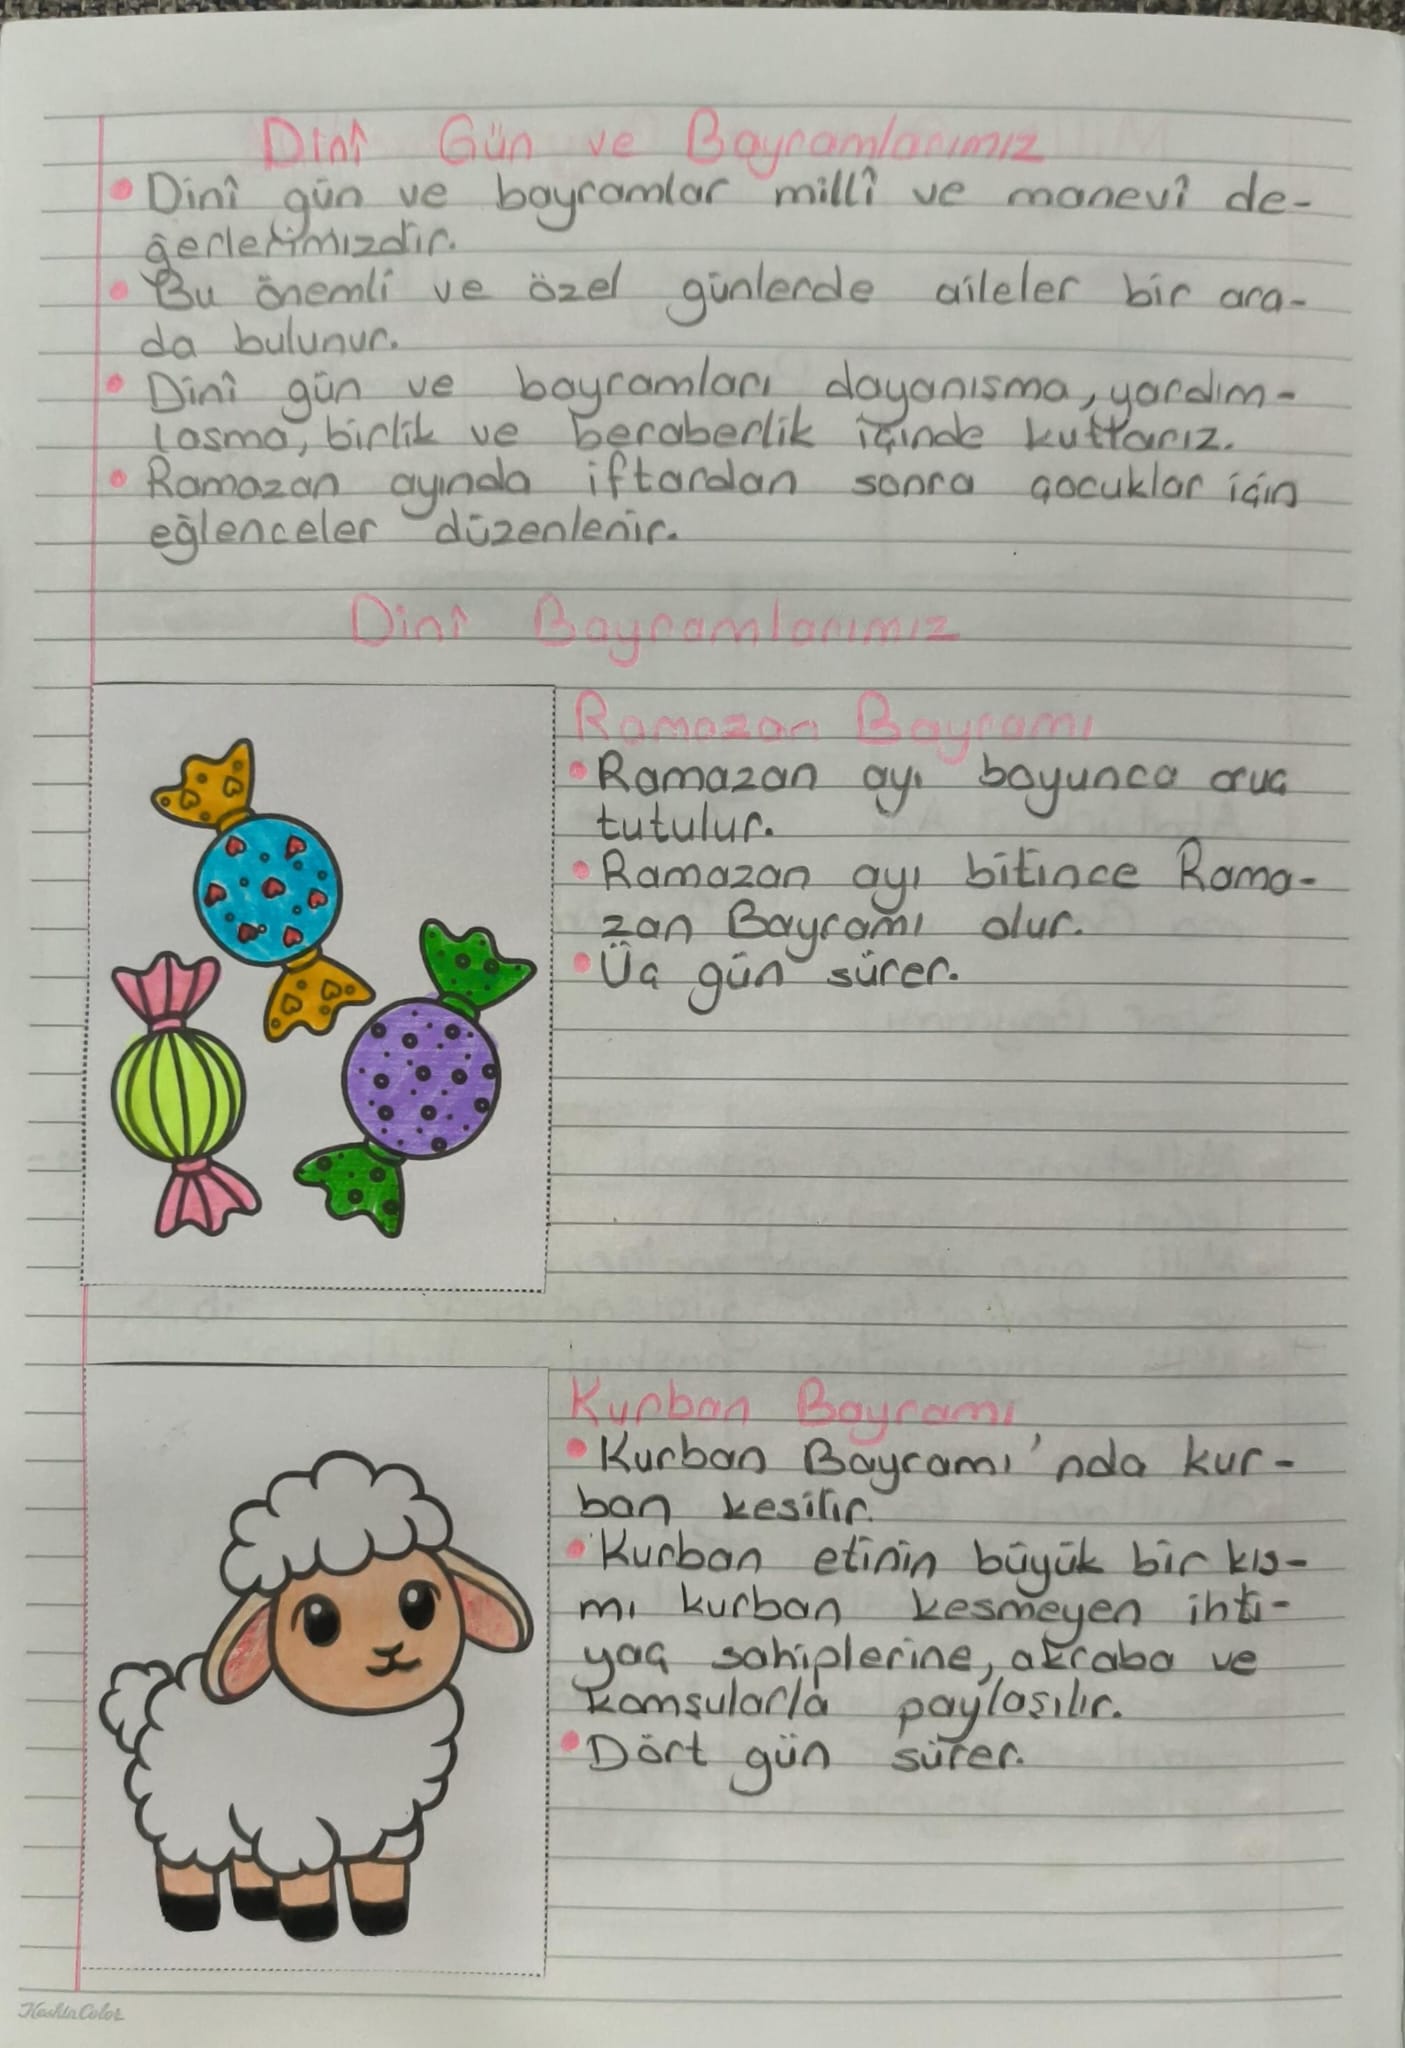 Dinî Gün ve Bayramlarımız
• Dinî gün ve bayramlar millî ve manevî de-
ğerlerimizdir.
• Bu önemli ve özel günlerde aileler bir ara-
da bulunur.
• Dinî gün ve bayramları dayanışma, yardım-
laşma, birlik ve beraberlik içinde kutlarız.
• Ramazan ayında iftardan sonra çocuklar için
eğlenceler düzenlenir.
Dinî Bayramlarımız
Ramazan Bayramı
• Ramazan ayı boyunca oruç
tutulur.
• Ramazan ayı bitince Rama-
zan Bayramı olur.
• Üç gün sürer.
Kurban Bayramı
• Kurban Bayramı'nda kur-
ban kesilir.
• Kurban etinin büyük bir kıs-
mı kurban kesmeyen ihti-
yaç sahiplerine, akraba ve
komşularla paylaşılır.
• Dört gün sürer.
KeskinColor